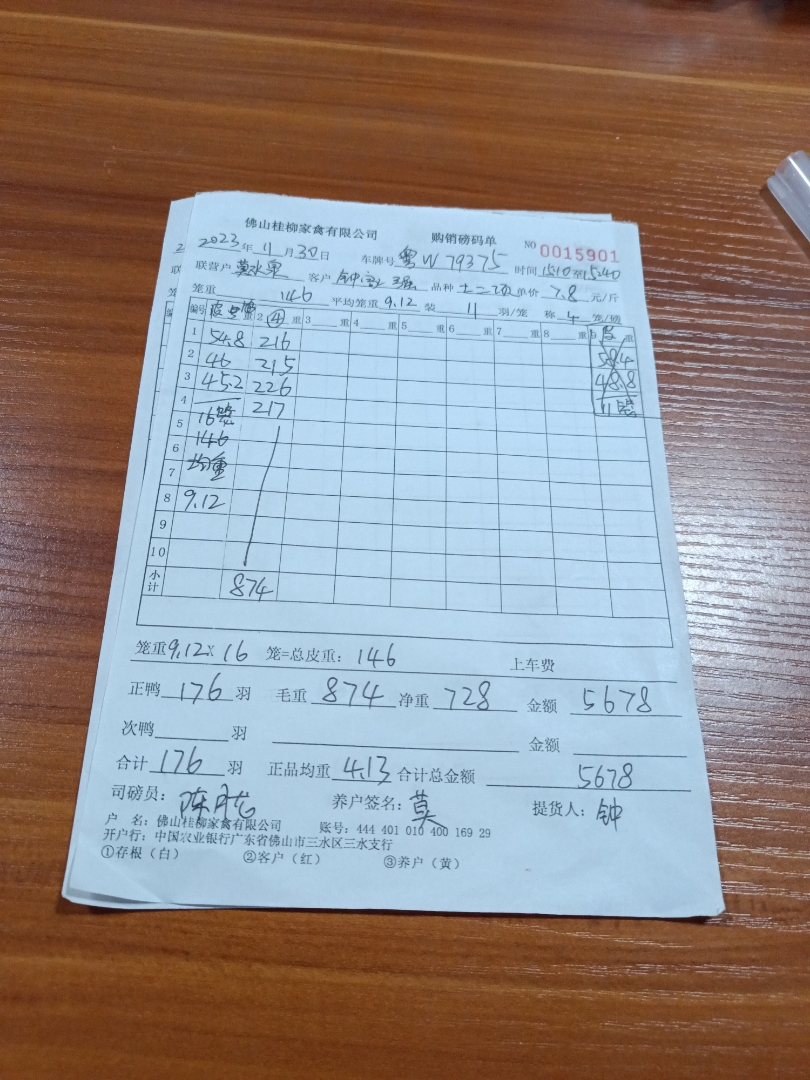 佛山桂柳家禽有限公司 购销磅码单 NO 0015901
2023年11月30日 车牌号 粤W79375 时间 15:10至15:40
联营户 莫水泉 客户 钟 品种 单价 7.8 元/斤
笼重 146 平均笼重 9.12 装 11 羽/笼 称 4 笼/磅
编号 重 2 ④ 重 3 重 4 重 5 重 6 重 7 重 8 重 皮 重
1 54.8 216 58.4
2 46 215 48.8
3 45.2 226 11笼
4 217
5 16笼
6 146
7 均重
8 9.12
9
10
小计 874
笼重 9.12 × 16 笼=总皮重： 146 上车费
正鸭 176 羽 毛重 874 净重 728 金额 5678
次鸭 羽 金额
合计 176 羽 正品均重 4.13 合计总金额 5678
司磅员： 陈 养户签名： 莫 提货人： 钟
户 名：佛山桂柳家禽有限公司 账号：444 401 010 400 169 29
开户行：中国农业银行广东省佛山市三水区三水支行
①存根（白） ②客户（红） ③养户（黄）